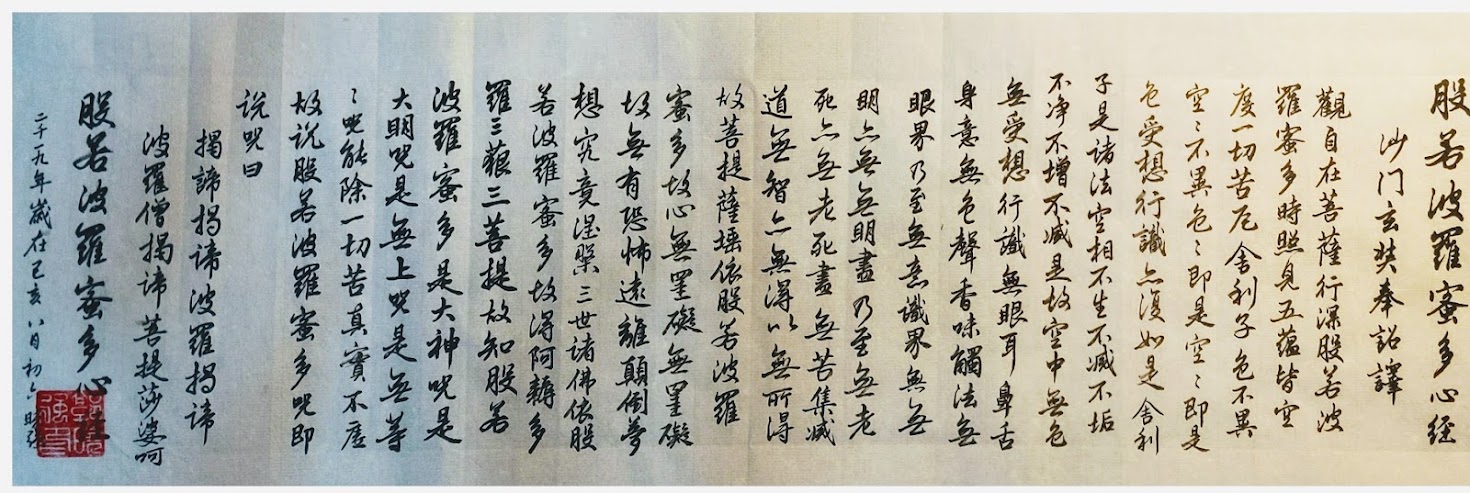 般若波羅蜜多心経
沙门玄奘奉詔譯
觀自在菩薩行深般若波
羅蜜多時照見五蕴皆空
度一切苦厄舍利子色不異
空々不異色々即是空々即是
色受想行識亦復如是舍利
子是诸法空相不生不滅不垢
不净不增不减是故空中無色
無受想行識無眼耳鼻舌
身意無色聲香味觸法無
眼界乃至無意識界無無
明亦無無明盡乃至無老
死亦無老死盡無苦集滅
道無智亦無得以無所得
故菩提薩埵依般若波羅
蜜多故心無罣礙無罣礙
故無有恐怖遠離顛倒夢
想究竟涅槃三世諸佛依般
若波羅蜜多故得阿耨多
羅三藐三菩提故知般若
波羅蜜多是大神咒是
大明咒是無上咒是無等
々咒能除一切苦真實不虛
故说般若波羅蜜多咒即
说咒曰
揭諦揭諦波羅揭諦
波羅僧揭諦菩提莎婆呵
般若波羅蜜多心
二千一九年歲在己亥八月初六